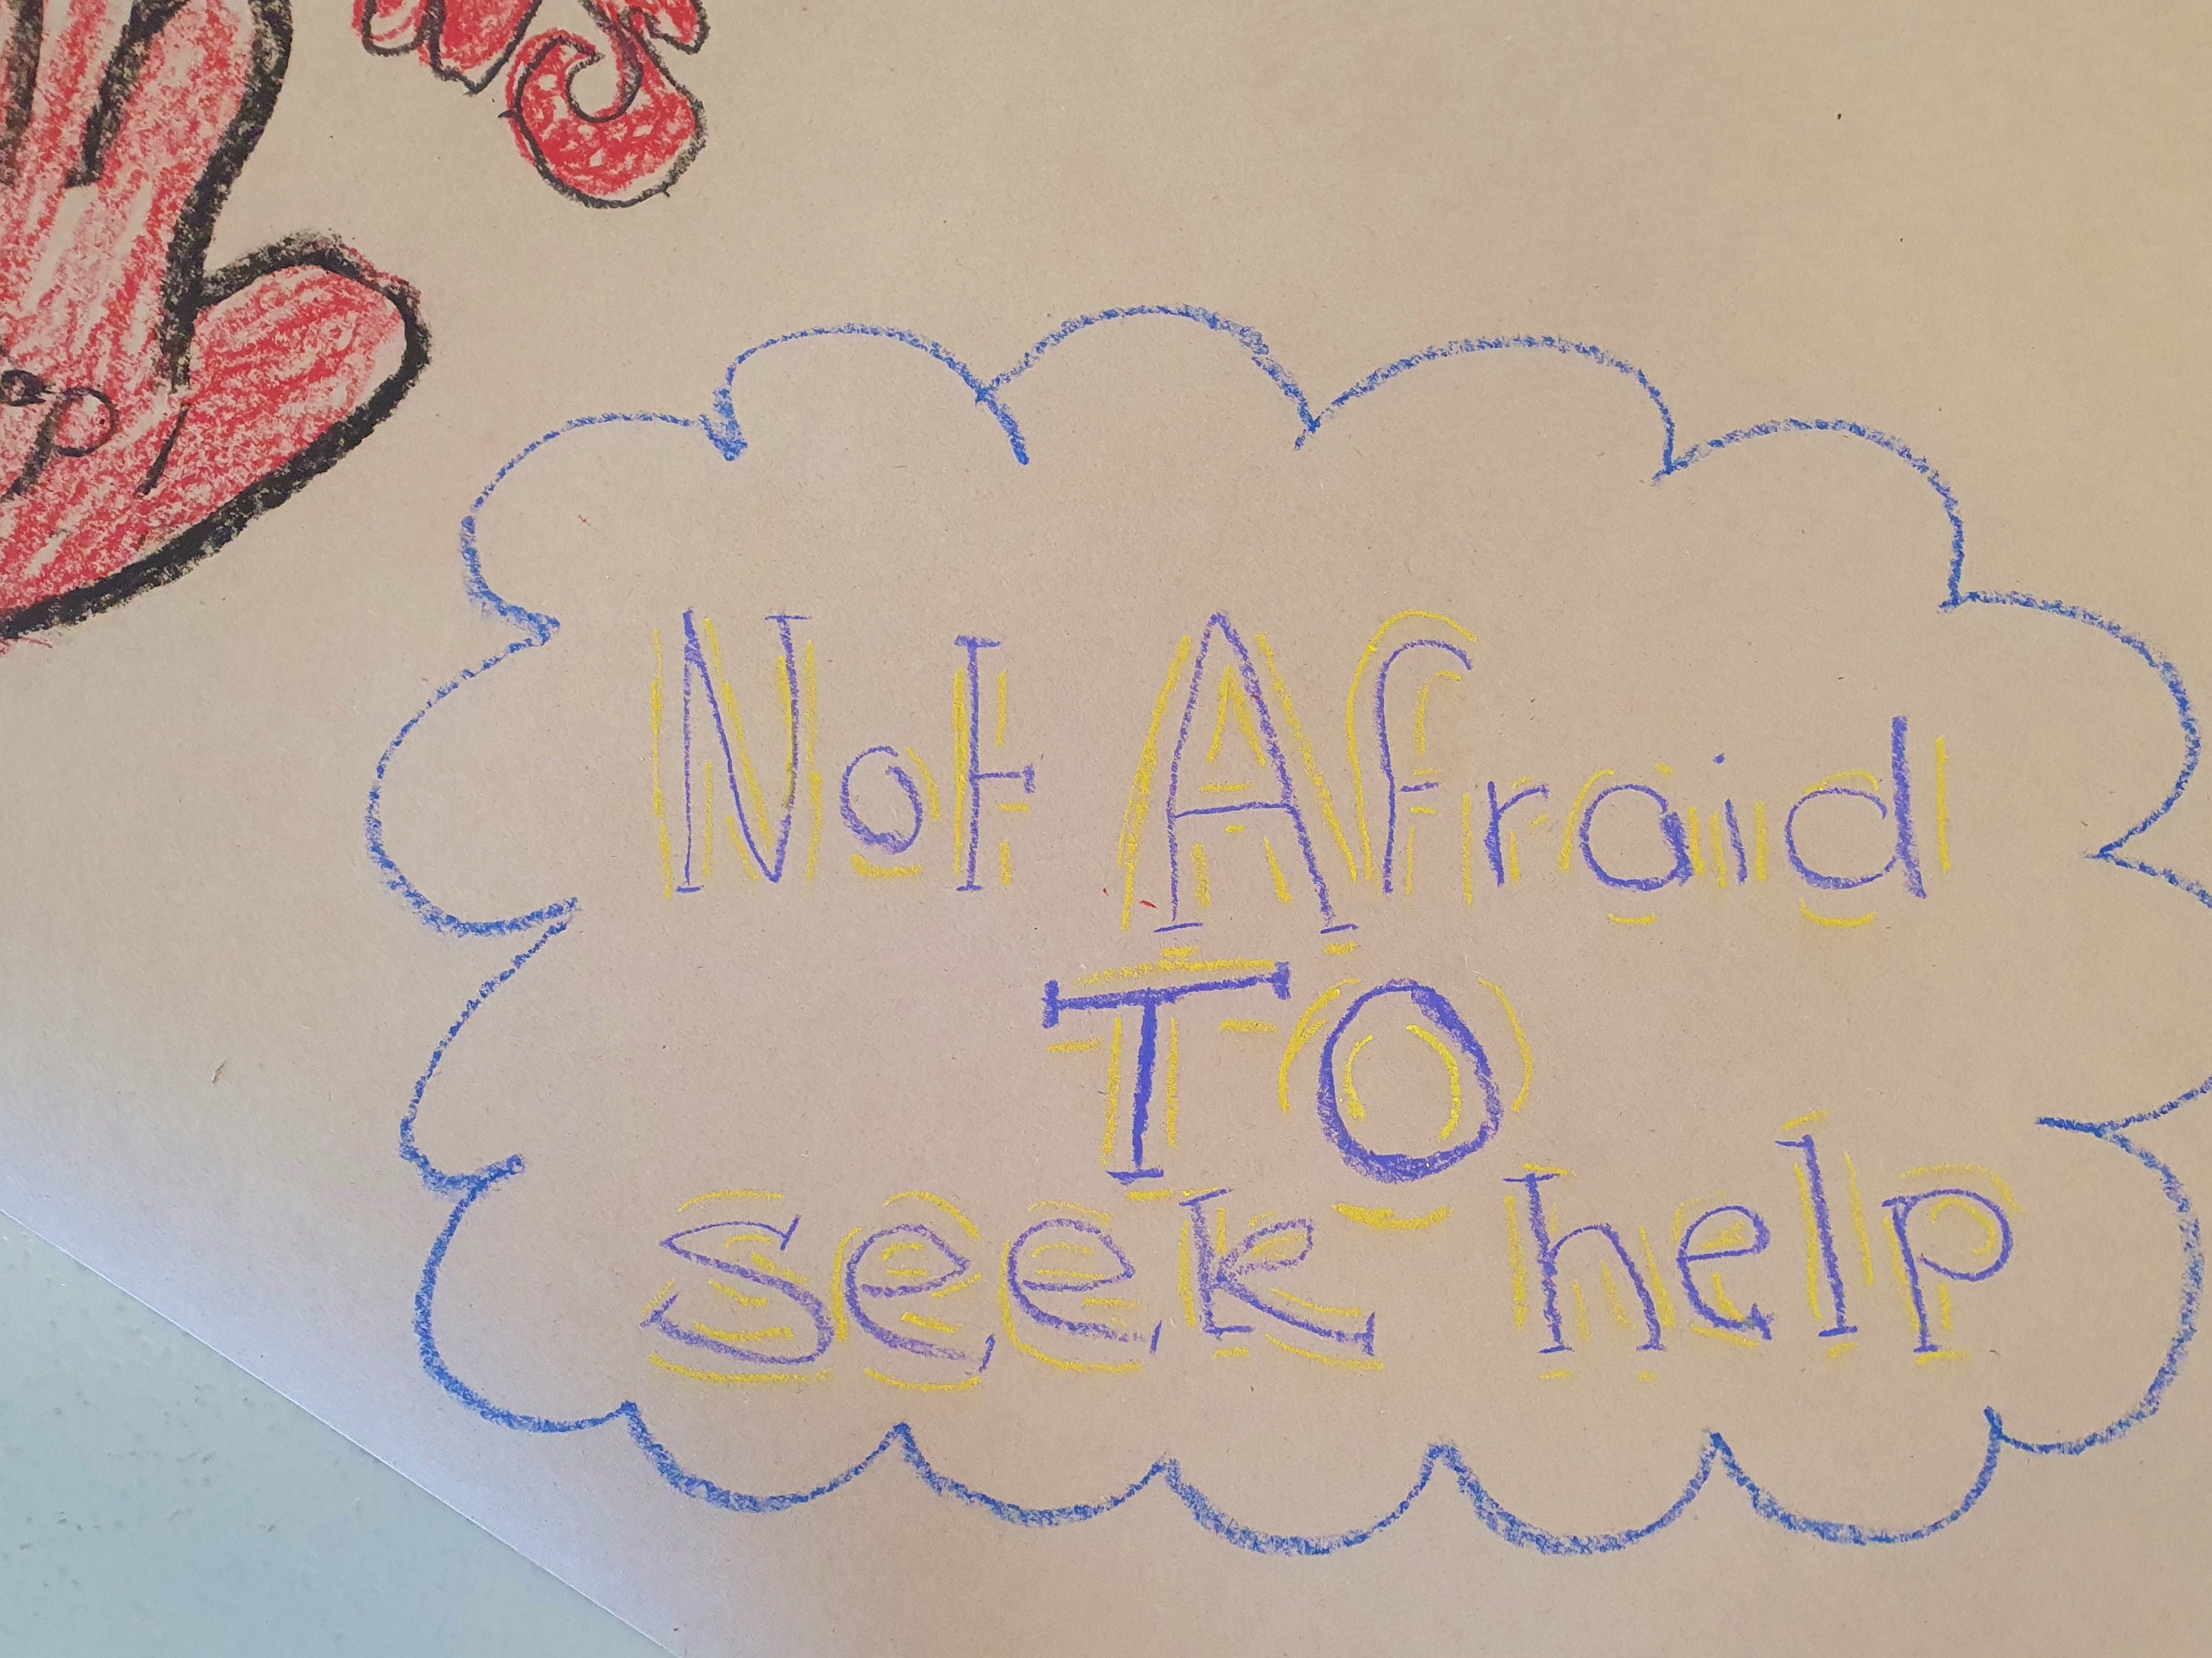 Not Afraid
TO
seek help